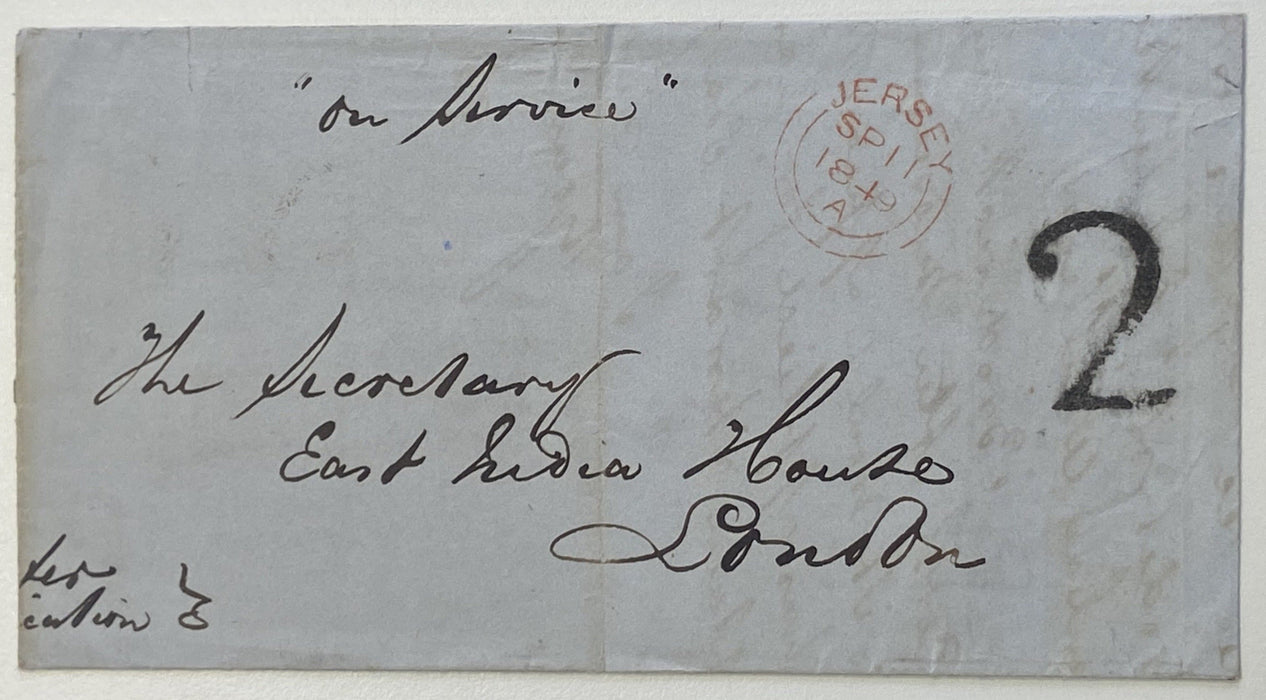 "on Service"
JERSEY
SP 11
1849
A
2
The Secretary
East India House
London
ter
ication